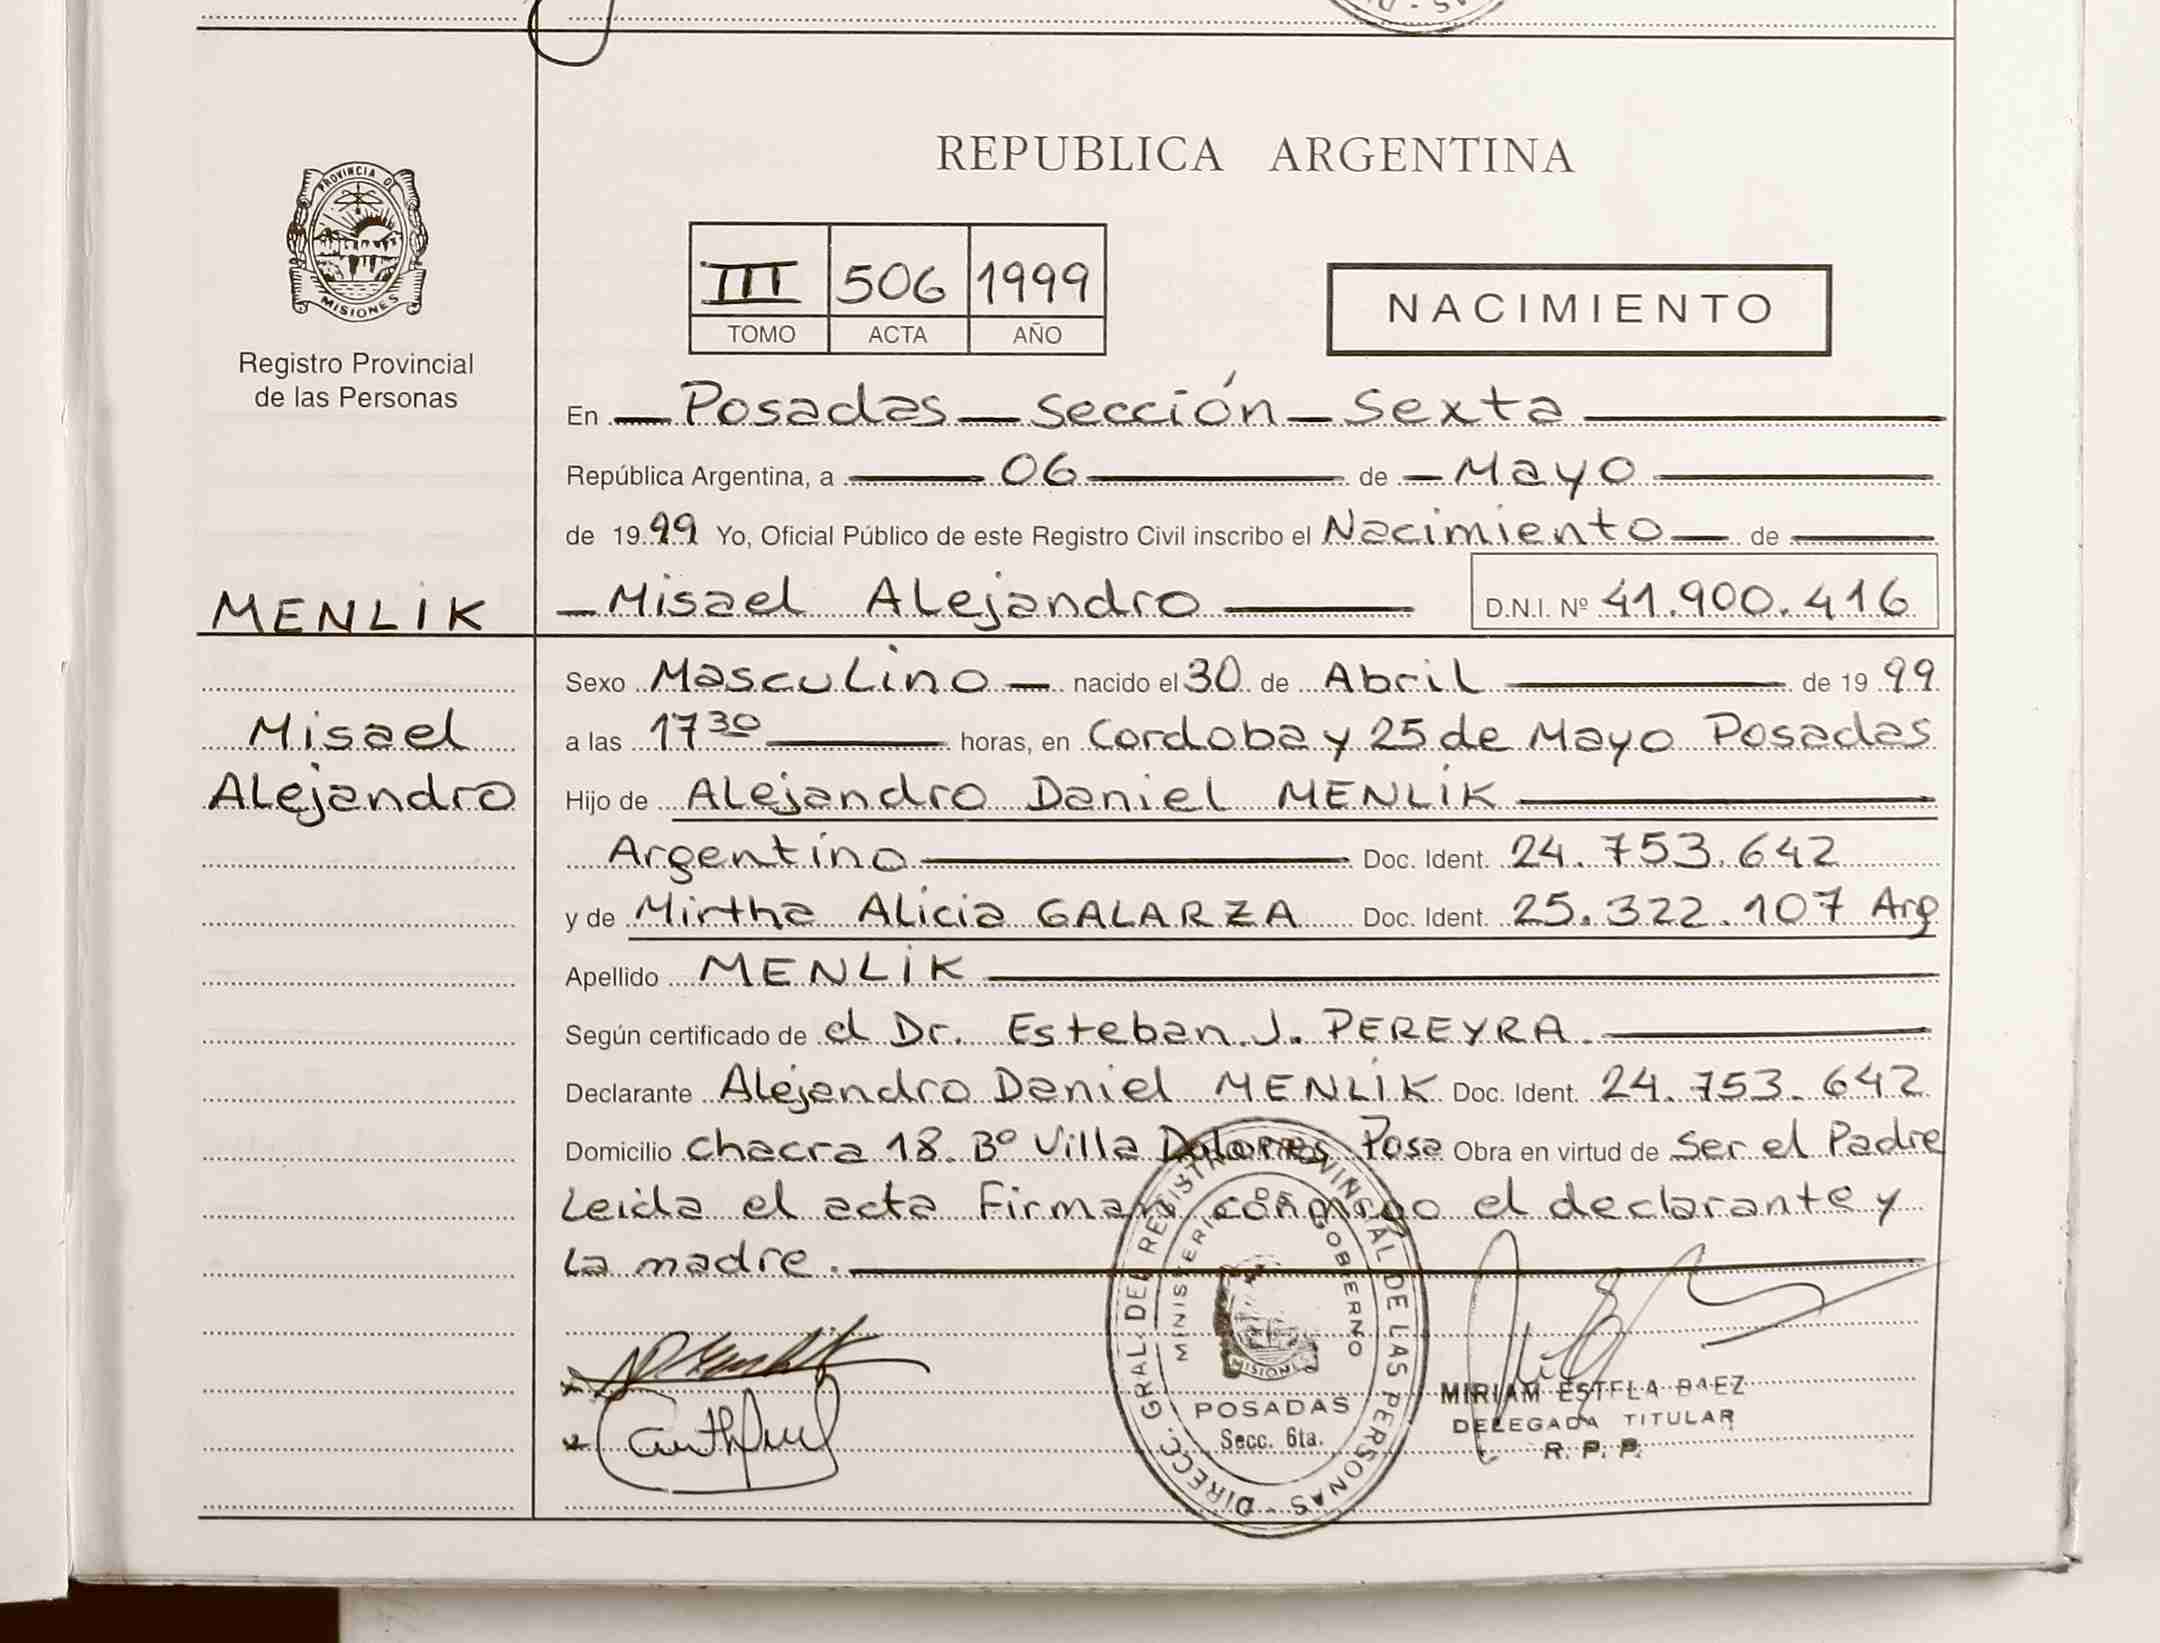 PROVINCIA D
MISIONES
Registro Provincial
de las Personas
MENLIK
Misael
Alejandro
REPUBLICA ARGENTINA
III 506 1999
TOMO ACTA AÑO
NACIMIENTO
En Posadas sección Sexta
República Argentina, a 06 de Mayo
de 1999 Yo, Oficial Público de este Registro Civil inscribo el Nacimiento de
Misael Alejandro D.N.I. Nº 41.900.416
Sexo Masculino nacido el 30 de Abril de 1999
a las 17 30 horas, en Cordoba y 25 de Mayo Posadas
Hijo de Alejandro Daniel MENLIK
Argentino Doc. Ident. 24.753.642
y de Mirtha Alicia GALARZA Doc. Ident. 25.322.107 Arg
Apellido MENLIK
Según certificado de el Dr. Esteban J. PEREYRA
Declarante Alejandro Daniel MENLIK Doc. Ident. 24.753.642
Domicilio chacra 18 Bº Villa Dolores Posa Obra en virtud de ser el Padre
Leida el acta Firman conmigo el declarante y
la madre.
DIRECC. GRAL. DEL REGISTRO PROVINCIAL DE LAS PERSONAS
MINISTERIO DE GOBIERNO
MISIONES
POSADAS
Secc. 6ta.
MIRIAM ESTELA BAEZ
DELEGADA TITULAR
R. P. P.